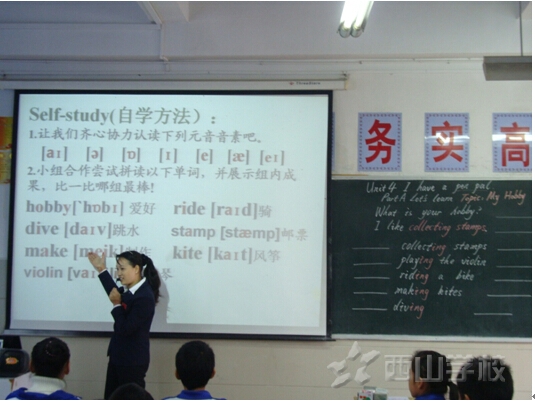 Self-study(自学方法)：
1.让我们齐心协力认读下列元音音素吧。
[aɪ] [ə] [ɒ] [ɪ] [e] [æ] [eɪ]
2.小组合作尝试拼读以下单词，并展示组内成
果，比一比哪组最棒！
hobby[`hɒbɪ] 爱好 ride [raɪd]骑
dive [daɪv]跳水 stamp [stæmp]邮票
make [meɪk] kite [kaɪt]风筝
violin 琴
务 实 高
Unit 4 I have a pen pal
Part A Let's learn Topic: My Hobby
What is your hobby?
I like collecting stamps.
collecting stamps
playing the violin
riding a bike
making kites
diving
西山学校